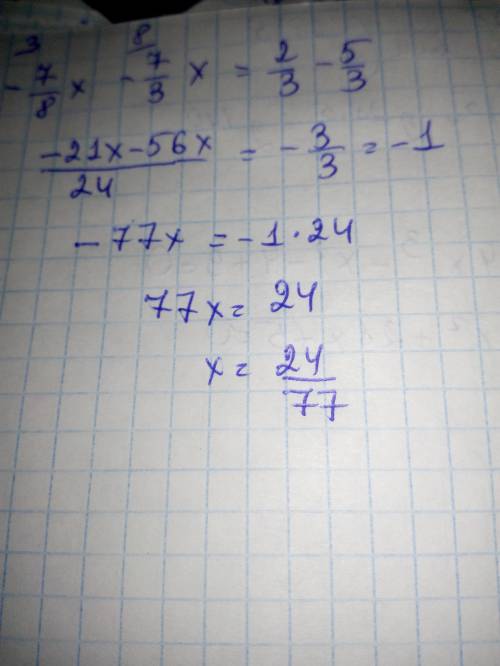 3 8
- 7/8 x - 7/3 x = 2/3 - 5/3
-21x-56x/24 = - 3/3 = -1
-77x = -1·24
77x = 24
x = 24/77